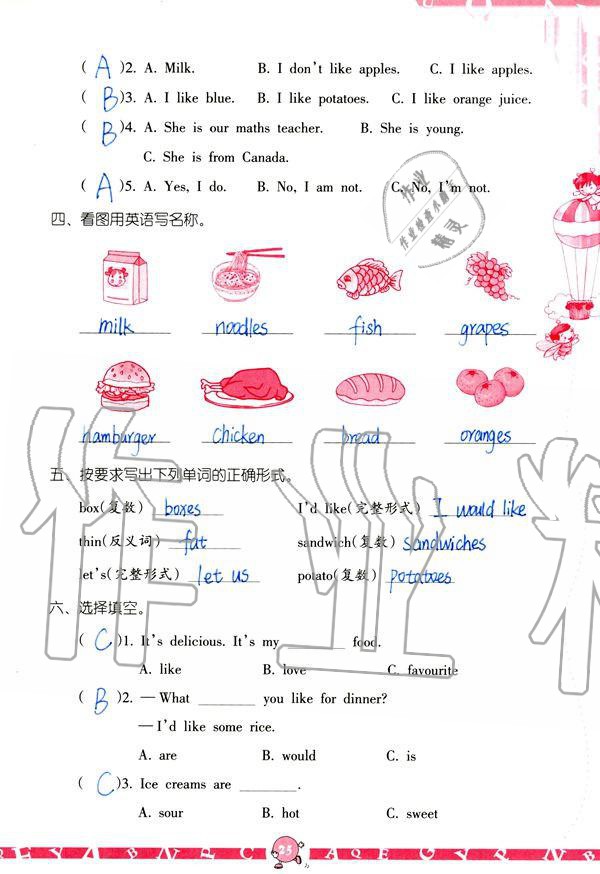 ( A )2. A. Milk. B. I don't like apples. C. I like apples.
( B )3. A. I like blue. B. I like potatoes. C. I like orange juice.
( B )4. A. She is our maths teacher. B. She is young.
C. She is from Canada.
( A )5. A. Yes, I do. B. No, I am not. C. No, I'm not.
作业
作业检查小帮
精灵
四、看图用英语写名称。
milk noodles fish grapes
hamburger chicken bread oranges
五、按要求写出下列单词的正确形式。
box(复数) boxes I'd like(完整形式) I would like
thin(反义词) fat sandwich(复数) sandwiches
let's(完整形式) let us potato(复数) potatoes
作业
六、选择填空。
( C )1. It's delicious. It's my ________ food.
A. like B. love C. favourite
( B )2. —What ________ you like for dinner?
—I'd like some rice.
A. are B. would C. is
( C )3. Ice creams are ________.
A. sour B. hot C. sweet
25